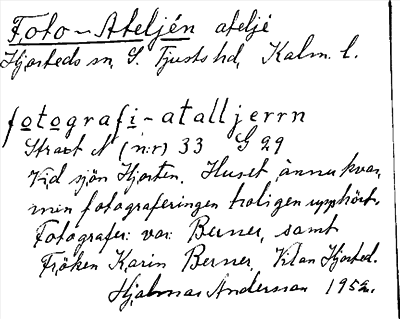 Foto-Ateljén ateljé
Hjorteds sn, S. Tjusts hd, Kalm. l.
fotografi-atalljerrn
Strax N (n:r) 33 G 29
Vid sjön Hjorten. Huset ännu kvar,
men fotograferingen troligen upphört.
Fotografer: var: Berner, samt
Fröken Karin Berner, Hjorted.
Hjalmar Andersson 1952.